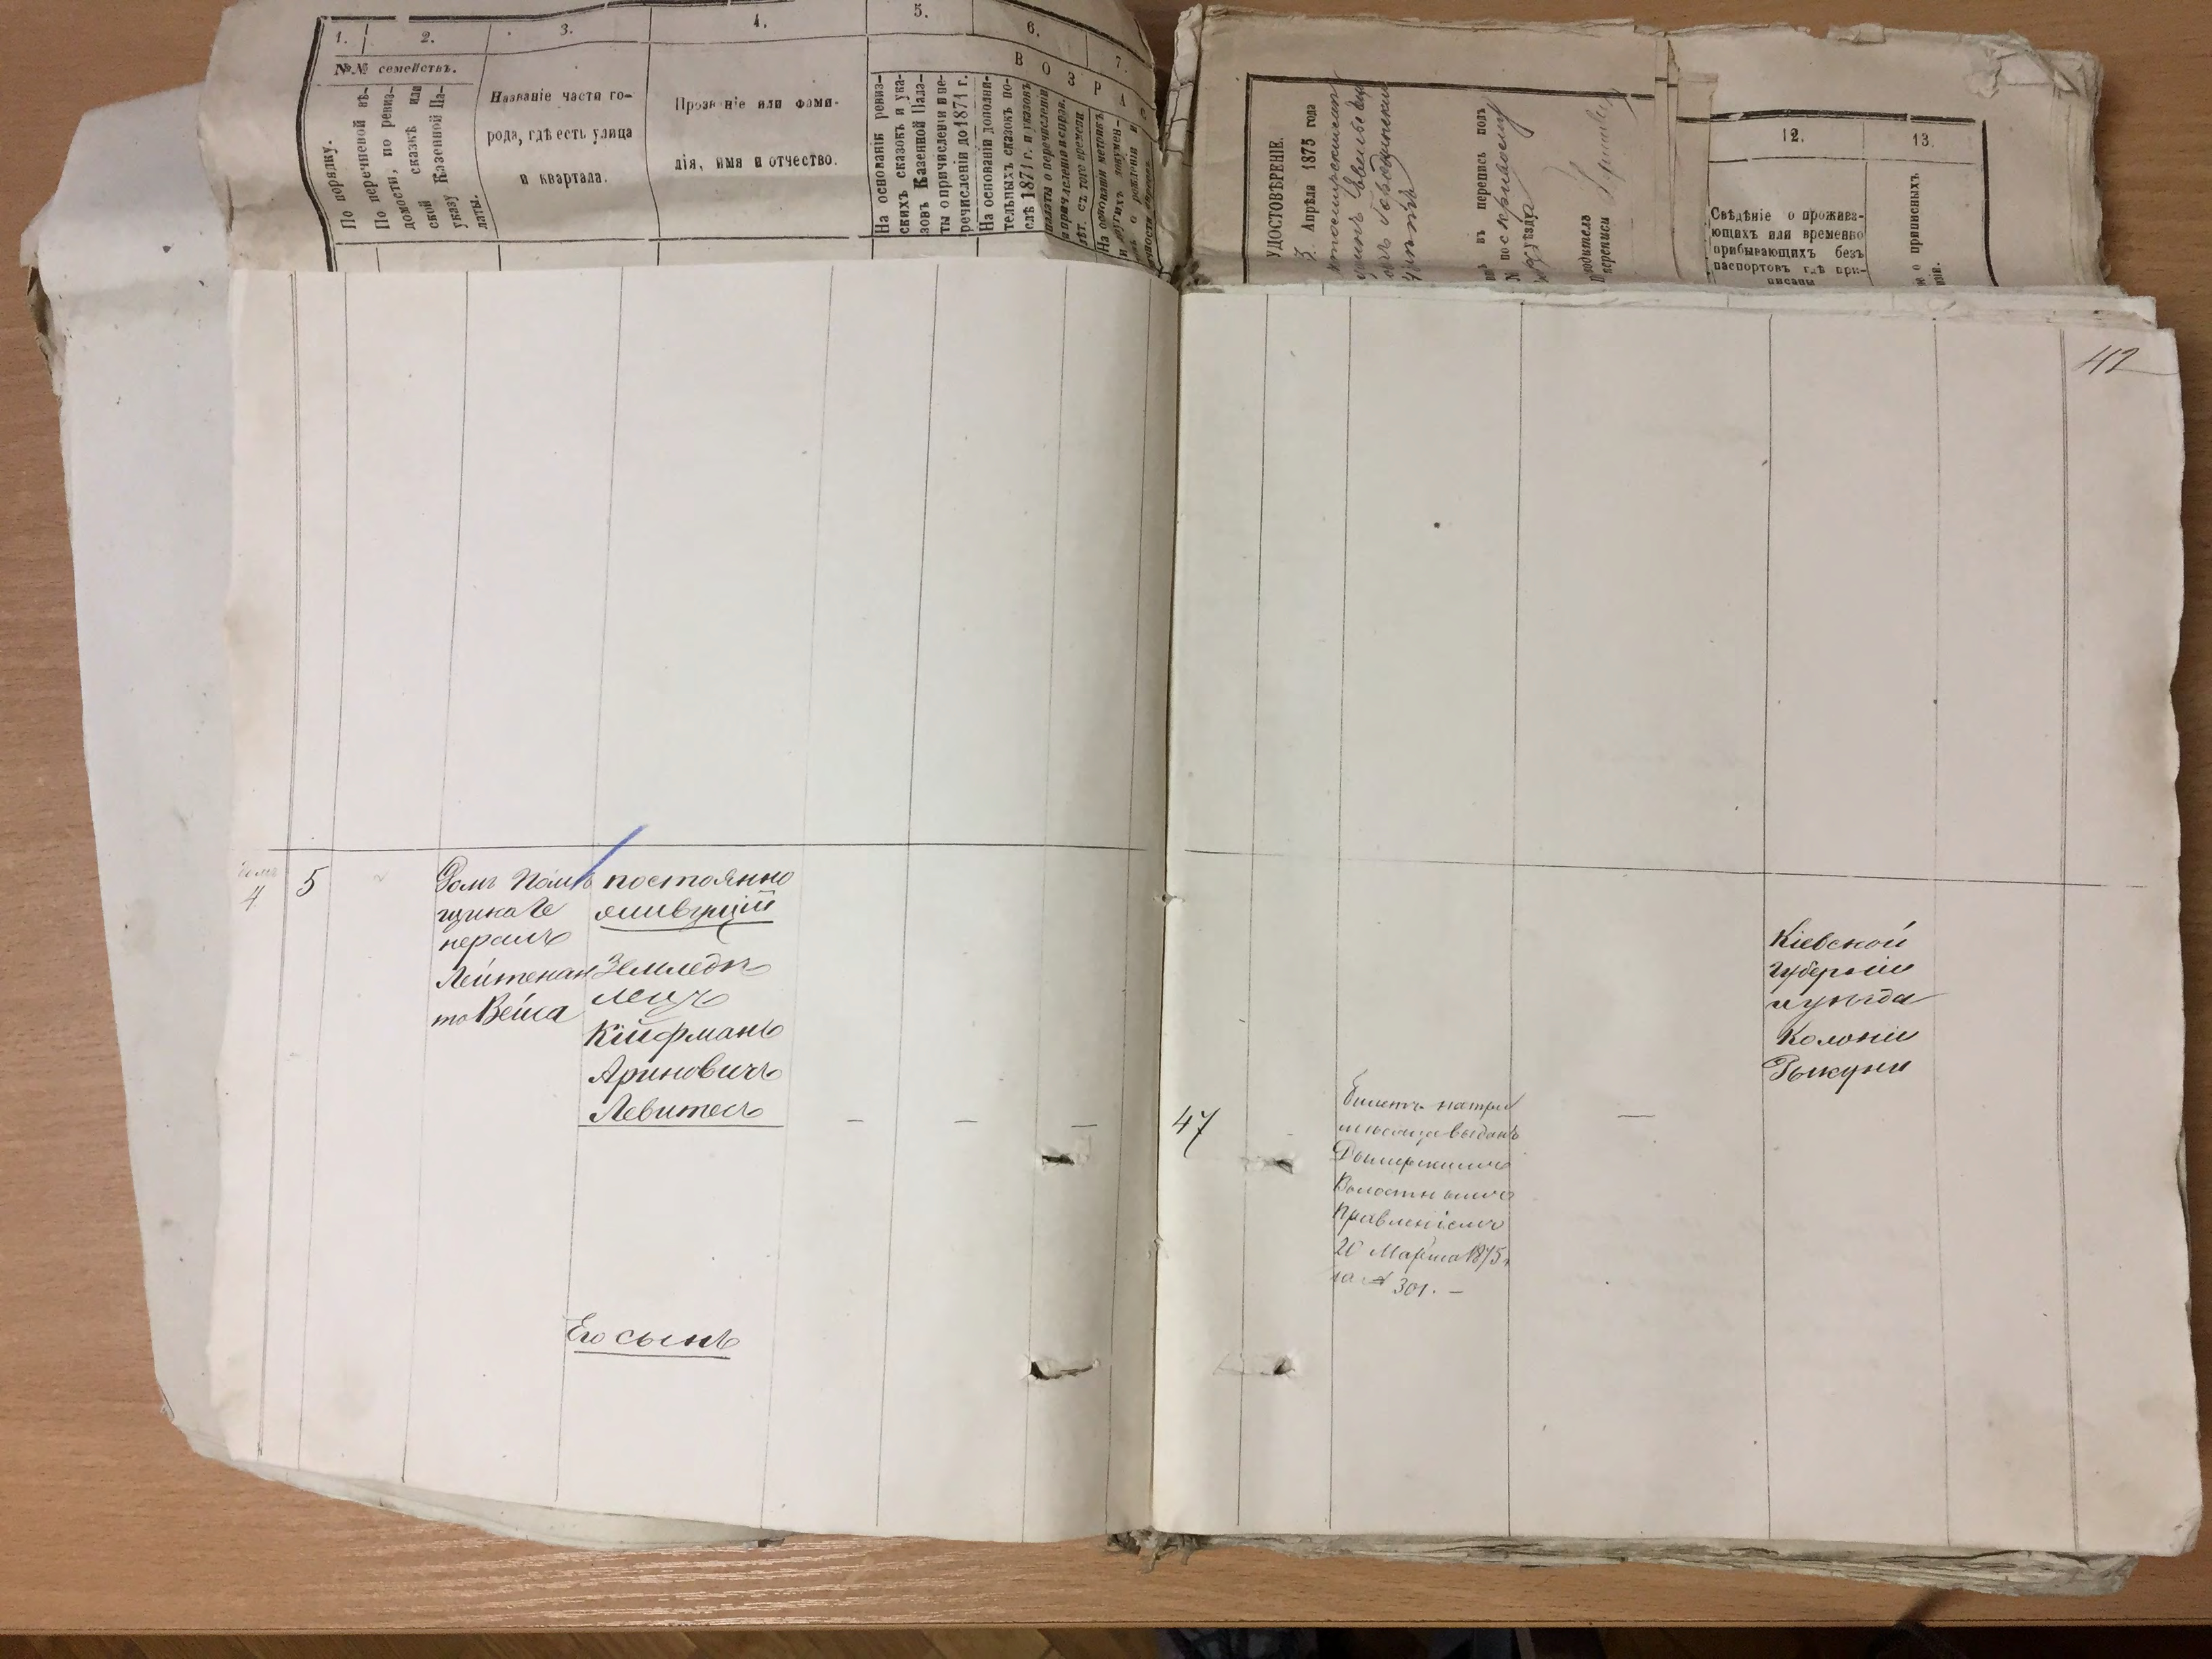 1. 2. 3. 4. 5. 6. 7.
№№ семействъ.
В О З Р А С
По порядку.
По перечневой вѣ-
домости, по ревиз-
ской сказкѣ или
указу Казенной Па-
латы.
Названіе части го-
рода, гдѣ есть улица
и квартала.
Прозваніе или фами-
лія, имя и отчество.
На основаніи ревиз-
скихъ сказокъ и ука-
зовъ Казенной Пала-
ты о причисленіи и пе-
речисленіи до 1871 г.
На основаніи дополни-
тельныхъ сказокъ по-
слѣ 1871 г. и указовъ
палаты о перечисленіи
На основаніи метрикъ
и другихъ докумен-
о рожденіи и
УДОСТОВѢРЕНІЕ.
3. Апрѣля 1875 года
въ перепись подъ
№
уѣзда
перепись
12. 13.
Свѣдѣніе о прожива-
ющихъ или временно
прибывающихъ безъ
паспортовъ гдѣ при-
писаны
о приписныхъ
42
4
5
Домъ Помѣ
щика Ге
нералъ
Лейтенан
та Вейса
постоянно
живущій
Земледѣ
лецъ
Кійфманъ
Ариновичъ
Левитесъ
— — —
Его сынъ
47
Билетъ на три
мѣсяца выданъ
Волостнымъ
Правленіемъ
20 Марта 1875 г
за № 301. —
—
Кіевской
Губерніи
и уѣзда
Колоніи
Рыкуни